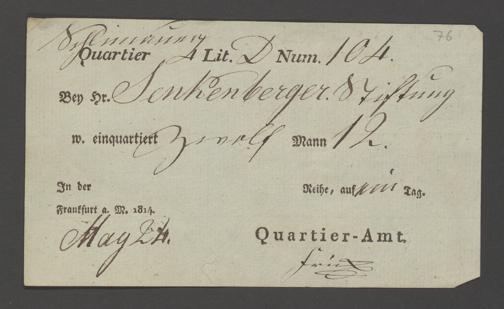 76
Quartier 4 Lit. D Num. 104.
Bey Hr. Senkenberger. Stiftung
w. einquartiert zwolf Mann 12.
In der Reihe, auf ein Tag.
Frankfurt a. M. 1814.
May 24.
Quartier-Amt.